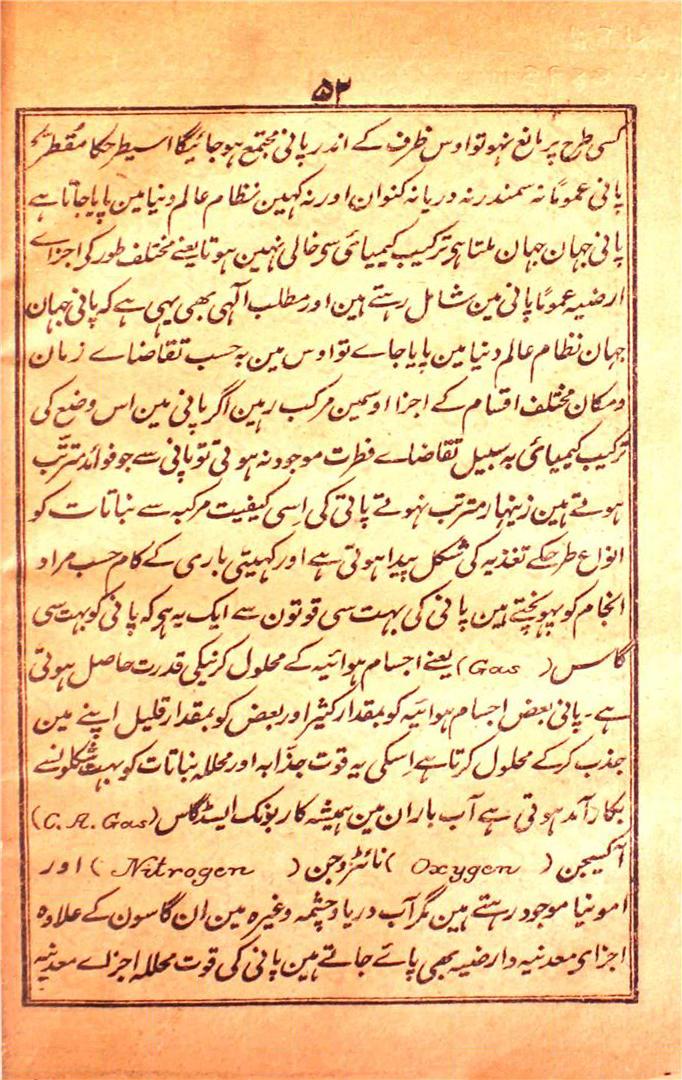 ۵۲
کسی طرح پر مانع نہو تو اوس ظرف کے اندر پانی مجتمع ہو جائیگا اسیطرحکا مُقطّر
پانی عمومًا نہ سمندر نہ دریا نہ کنوان اور نہ کہین نظام عالم دنیا مین پایا جاتا ہے
پانی جہان جہان ملتا ہی ترکیب کیمیائی سی خالی نہین ہوتا یعنے مختلف طور کی اجزاے
ارضیہ عمومًا پانی مین شامل رہتے ہین اور مطلب الٰہی بھی یہی ہے کہ پانی جہان
جہان نظام عالم دنیا مین پایا جاے تو اوس مین بہ حسب تقاضاے زمان
و مکان مختلف اقسام کے اجزا اوسمین مرکب رہین اگر پانی مین اس وضع کی
ترکیب کیمیائی بہ سبیل تقاضاے فطرت موجود نہ ہوتی تو پانی سے جو فوائد مترتّب
ہوتے ہین زینہار مترتب نہوتے پانی کی اِسی کیفیت مرکبہ سے نباتات کو
انواع طرحکے تغذیہ کی شکل پیدا ہوتی ہے اور کھیتی باری کے کام حسب مراد
انجام کو پہو نچتے ہین پانی کی بہت سی قوتون سے ایک یہ ہی کہ پانی کو بہت سی
گاس (Gas) یعنے اجسام ہوائیہ کے محلول کرنیکی قدرت حاصل ہوتی
ہے۔ پانی بعض اجسام ہوائیہ کو بمقدار کثیر اور بعض کو بمقدار قلیل اپنے مین
جذب کر کے محلول کرتا ہے اِسکی یہ قوت جذّابہ اور محللہ نباتات کو بہت شکلونسے
بکار آمد ہوتی ہے آب باران مین ہمیشہ کاربونک ایسڈ گاس (C. A. Gas)
آکسیجن (Oxygen) نائٹروجن (Nitrogen) اور
امونیا موجود رہتے ہین مگر آب دریا و چشمہ وغیرہ مین ان گاسون کے علاوہ
اجزای معدنیہ و ارضیہ بھی پائے جاتے ہین پانی کی قوت محللہ اجزاے معدنیہ